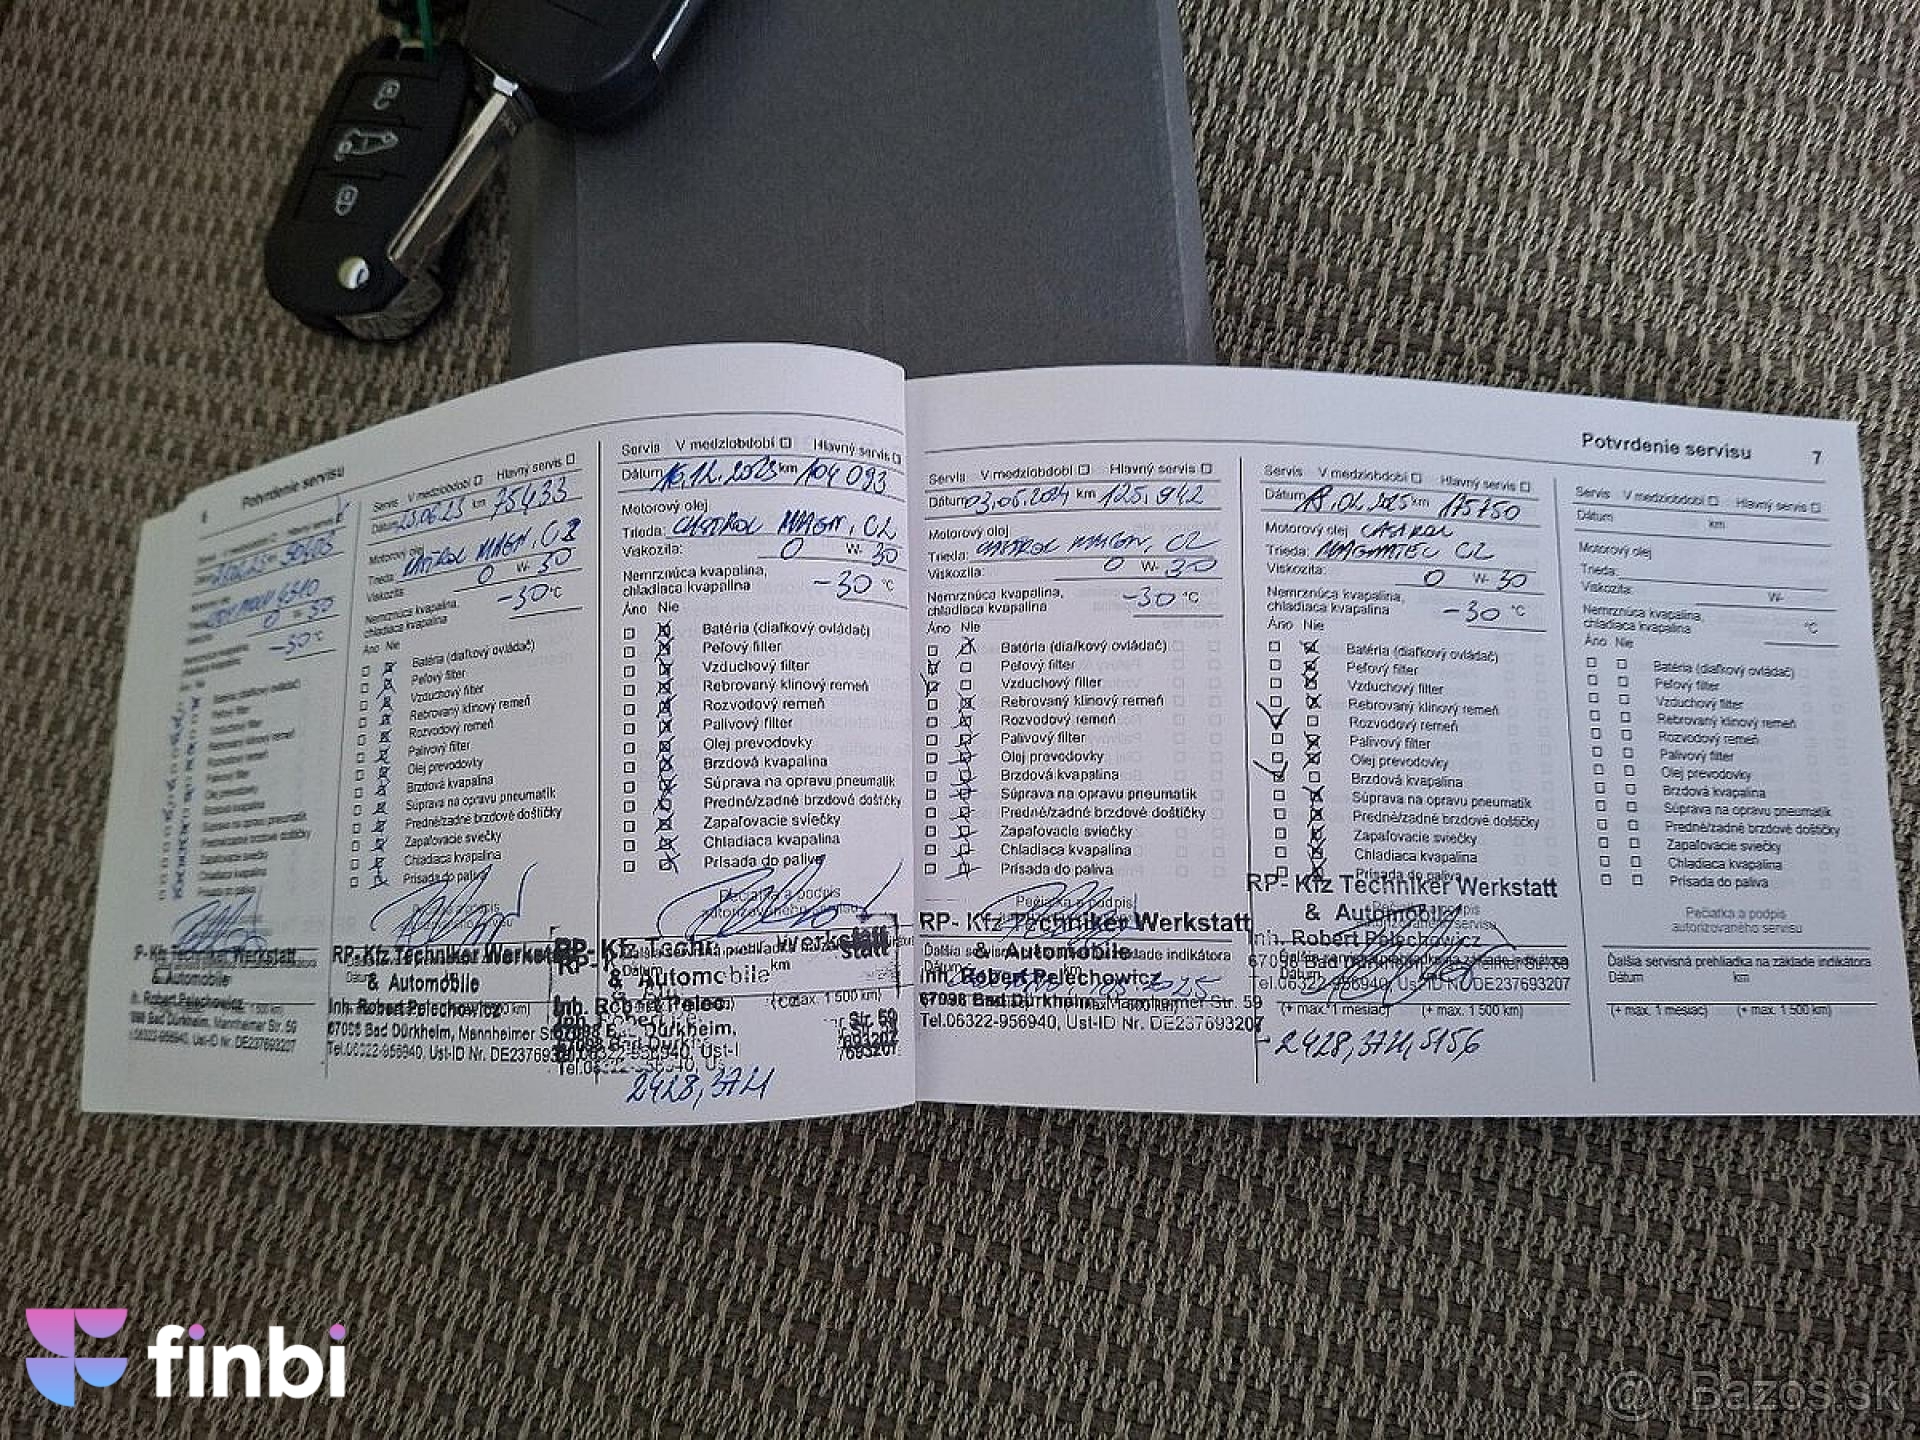 6 Potvrdenie servisu
-30 °C
P- Kfz Techniker Werkstatt
& Automobile
h. Robert Pelechowicz
098 Bad Dürkheim, Mannheimer Str. 59
06322-956940, Ust-ID Nr. DE237693207
Servis V medziobdobí Hlavný servis
Dátum 23.06.23 km 75433
Motorový olej
Trieda: CASTROL MAGN. C2
Viskozita: 0 W- 30
Nemrznúca kvapalina,
chladiaca kvapalina -30 °C
Áno Nie
Batéria (diaľkový ovládač)
Peľový filter
Vzduchový filter
Rebrovaný klinový remeň
Rozvodový remeň
Palivový filter
Olej prevodovky
Brzdová kvapalina
Súprava na opravu pneumatík
Predné/zadné brzdové doštičky
Zapaľovacie sviečky
Chladiaca kvapalina
Prísada do paliva
RP- Kfz Techniker Werkstatt
& Automobile
Inh. Robert Pelechowicz
67098 Bad Dürkheim, Mannheimer
Tel.06322-956940, Ust-ID Nr. DE237693
Servis V medziobdobí Hlavný servis
Dátum 16.12.2023 km 104 093
Motorový olej
Trieda: CASTROL MAGN. C2
Viskozita: 0 W- 30
Nemrznúca kvapalina,
chladiaca kvapalina -30 °C
Áno Nie
Batéria (diaľkový ovládač)
Peľový filter
Vzduchový filter
Rebrovaný klinový remeň
Rozvodový remeň
Palivový filter
Olej prevodovky
Brzdová kvapalina
Súprava na opravu pneumatík
Predné/zadné brzdové doštičky
Zapaľovacie sviečky
Chladiaca kvapalina
Prísada do paliva
Pečiatka a podpis
autorizovaného servisu
Werkstatt
& Automobile
Dátum km
(+ max. 1 500 km)
2428, 3721
Servis V medziobdobí Hlavný servis
Dátum 03.06.2024 km 125.942
Motorový olej
Trieda: CASTROL MAGN. C2
Viskozita: 0 W- 30
Nemrznúca kvapalina,
chladiaca kvapalina -30 °C
Áno Nie
Batéria (diaľkový ovládač)
Peľový filter
Vzduchový filter
Rebrovaný klinový remeň
Rozvodový remeň
Palivový filter
Olej prevodovky
Brzdová kvapalina
Súprava na opravu pneumatík
Predné/zadné brzdové doštičky
Zapaľovacie sviečky
Chladiaca kvapalina
Prísada do paliva
Pečiatka a podpis
RP- Kfz Techniker Werkstatt
& Automobile
Inh. Robert Pelechowicz
67098 Bad Dürkheim, Mannheimer Str. 59
Tel.06322-956940, Ust-ID Nr. DE237693207
Potvrdenie servisu 7
Servis V medziobdobí Hlavný servis
Dátum 18.02.2025 km 175750
Motorový olej CASTROL
Trieda: MAGNATEC C2
Viskozita: 0 W- 30
Nemrznúca kvapalina,
chladiaca kvapalina -30 °C
Áno Nie
Batéria (diaľkový ovládač)
Peľový filter
Vzduchový filter
Rebrovaný klinový remeň
Rozvodový remeň
Palivový filter
Olej prevodovky
Brzdová kvapalina
Súprava na opravu pneumatík
Predné/zadné brzdové doštičky
Zapaľovacie sviečky
Chladiaca kvapalina
Prísada do paliva
RP- Kfz Techniker Werkstatt
& Automobile
Inh. Robert Pelechowicz
67098 Bad Dürkheim, Mannheimer Str. 59
Tel.06322-956940, Ust-ID Nr. DE237693207
(+ max. 1 mesiac) (+ max. 1 500 km)
2428, 3721, 5156
Servis V medziobdobí Hlavný servis
Dátum km
Motorový olej
Trieda:
Viskozita: W-
Nemrznúca kvapalina,
chladiaca kvapalina °C
Áno Nie
Batéria (diaľkový ovládač)
Peľový filter
Vzduchový filter
Rebrovaný klinový remeň
Rozvodový remeň
Palivový filter
Olej prevodovky
Brzdová kvapalina
Súprava na opravu pneumatík
Predné/zadné brzdové doštičky
Zapaľovacie sviečky
Chladiaca kvapalina
Prísada do paliva
Pečiatka a podpis
autorizovaného servisu
Ďalšia servisná prehliadka na základe indikátora
Dátum km
(+ max. 1 mesiac) (+ max. 1 500 km)
finbi
@ Bazos.sk